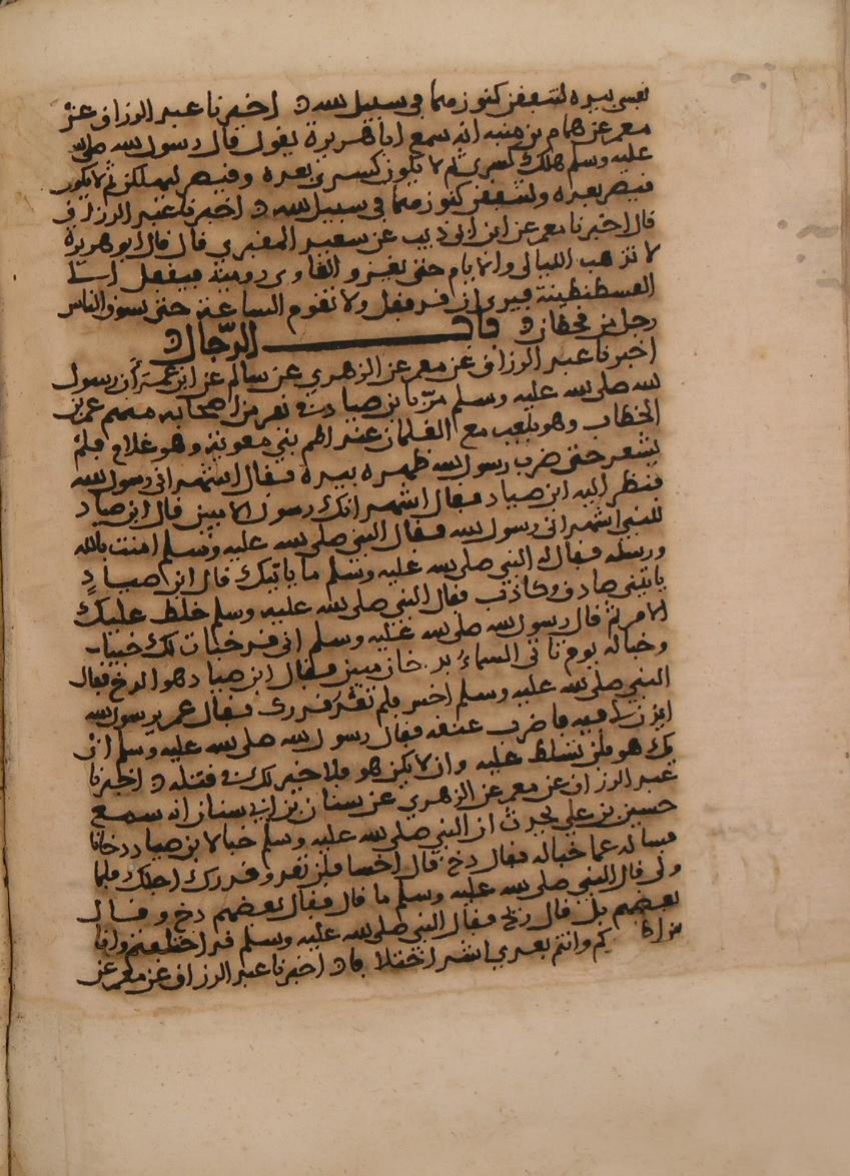 نفسي بيده لتنفقن كنوزهما في سبيل الله اخبرنا عبد الرزاق عن
معمر عن همام بن منبه انه سمع ابا هريرة يقول قال رسول الله صلى الله
عليه وسلم هلك كسرى ثم لا يكون كسرى بعده وقيصر ليهلكن ثم لا يكون
قيصر بعده ولتنفقن كنوزهما في سبيل الله اخبرنا عبد الرزاق
قال اخبرنا معمر عن ابن ابي ذيب عن سعيد المقبري قال قال ابو هريرة
لا تذهب الليالي والايام حتى يغزو العادي رومية فيقفل الى
القسطنطينة فيرى ان قد قفل ولا تقوم الساعة حتى يسوق الناس
رجل من قحطان باب الدجال
اخبرنا عبد الرزاق عن معمر عن الزهري عن سالم عن ابن عمر ان رسول
الله صلى الله عليه وسلم مر بابن صياد في نفر من اصحابه منهم عمر بن
الخطاب وهو يلعب مع الغلمان عند اطم بني معوية وهو غلام فلم
يشعر حتى ضرب رسول الله ظهره بيده فقال اشهد اني رسول الله
فنظر اليه ابن صياد فقال اشهد انك رسول الاميين قال ابن صياد
للنبي اشهد اني رسول الله فقال النبي صلى الله عليه وسلم امنت بالله
ورسله فقال له النبي صلى الله عليه وسلم ما ياتيك قال ابن صياد
ياتيني صادق وكاذب فقال النبي صلى الله عليه وسلم خلط عليك
الامر ثم قال رسول الله صلى الله عليه وسلم اني قد خبات لك خبيا
وخبا له يوم تاتي السماء بدخان مبين فقال ابن صياد هو الدخ فقال
النبي صلى الله عليه وسلم اخس فلم تعد قدرك فقال عمر يرسول الله
ايذن لي فيه فاضرب عنقه فقال رسول الله صلى الله عليه وسلم ان
يك هو فلن تسلط عليه وان لا يكن هو فلا خير لك في قتله اخبرنا
عبد الرزاق عن معمر عن الزهري عن سنان بن ابي سنان انه سمع
حسين بن علي يحدث ان النبي صلى الله عليه وسلم خبا لابن صياد دخانا
فساله عما خبا له فقال دخ قال اخسا فلن تعدو قدرك اجلك فلما
ولى قال النبي صلى الله عليه وسلم ما قال فقال بعضهم دخ وقال
بعضهم بل قال زخ فقال النبي صلى الله عليه وسلم قد اختلفتم وانا
كم وانتم بعدي اشد اختلافا اخبرنا عبد الرزاق عن معمر عن